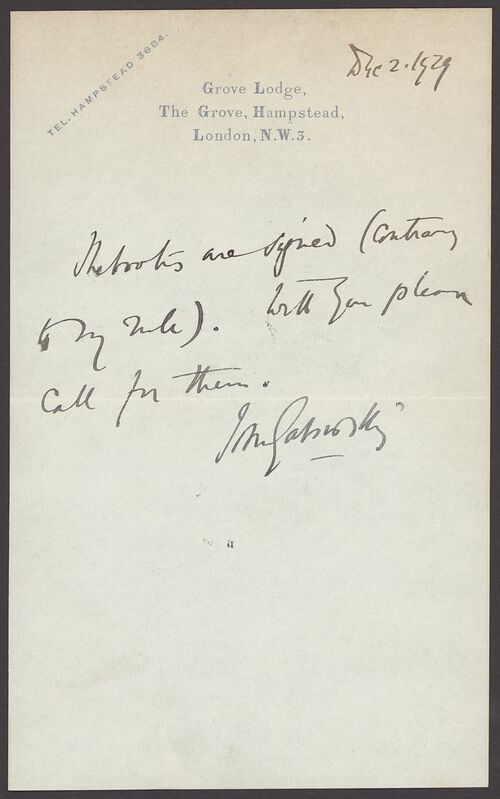 TEL. HAMPSTEAD 3684.
Dec 2. 1929
Grove Lodge,
The Grove, Hampstead,
London, N.W.3.
The books are signed (contrary
to my rule). Will you please
call for them.
John Galsworthy